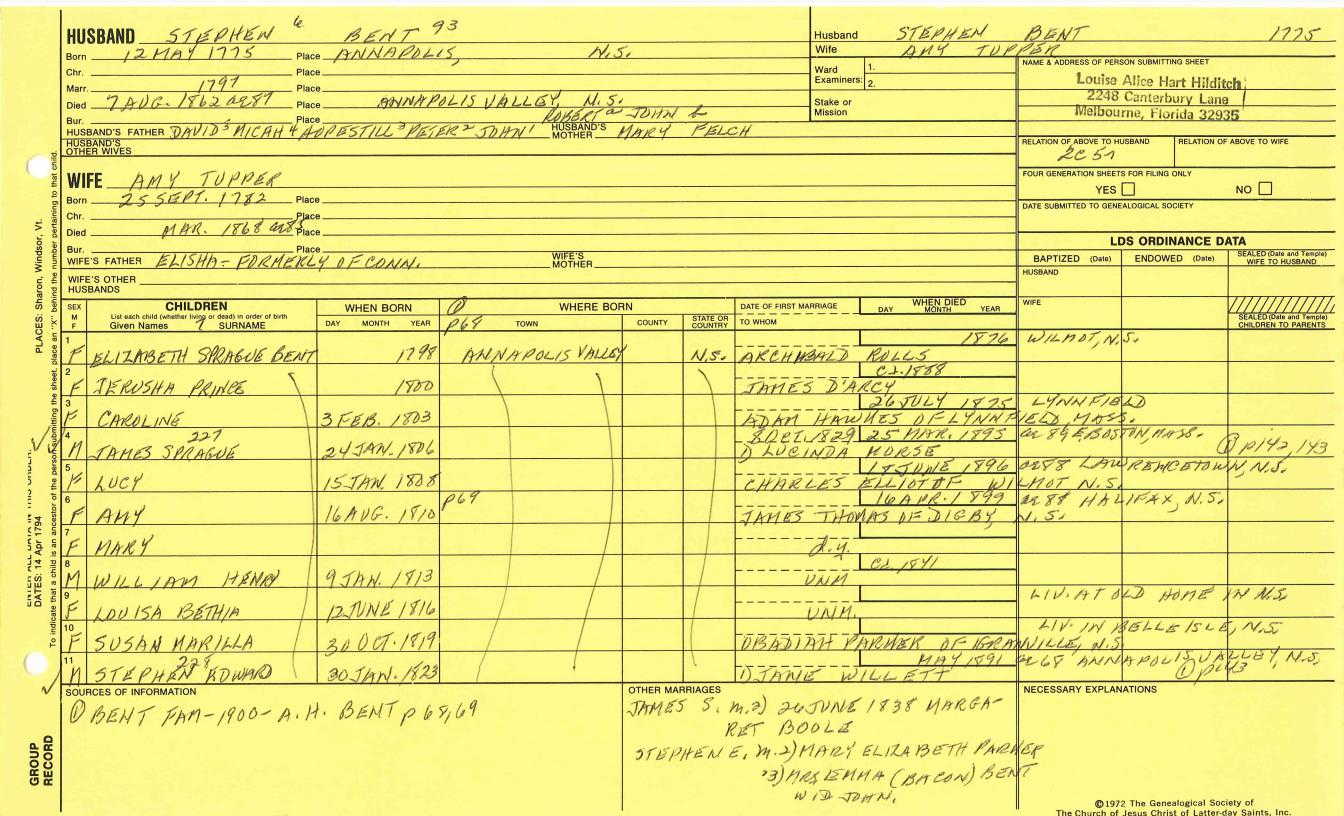 HUSBAND STEPHEN 6 BENT 93
Born 12 MAY 1775 Place ANNAPOLIS, N.S.
Chr. Place
Marr. 1797 Place
Died 7 AUG. 1862 ae87 Place ANNAPOLIS VALLEY, N.S.
Bur. Place ROBERT a JOHN b
HUSBAND'S FATHER DAVID 5 MICAH 4 HOPESTILL 3 PETER 2 JOHN 1 HUSBAND'S MOTHER MARY FELCH
HUSBAND'S OTHER WIVES
Husband STEPHEN BENT 1775
Wife AMY TUPPER
Ward Examiners: 1.
2.
Stake or Mission
NAME & ADDRESS OF PERSON SUBMITTING SHEET
Louise Alice Hart Hilditch
2248 Canterbury Lane
Melbourne, Florida 32935
RELATION OF ABOVE TO HUSBAND RELATION OF ABOVE TO WIFE
2C 5r
FOUR GENERATION SHEETS FOR FILING ONLY
YES NO
DATE SUBMITTED TO GENEALOGICAL SOCIETY
WIFE AMY TUPPER
Born 25 SEPT. 1782 Place
Chr. Place
Died MAR. 1868 ae85 Place
Bur. Place
WIFE'S FATHER ELISHA - FORMERLY OF CONN. WIFE'S MOTHER
WIFE'S OTHER HUSBANDS
LDS ORDINANCE DATA
BAPTIZED (Date) ENDOWED (Date) SEALED (Date and Temple) WIFE TO HUSBAND
HUSBAND
WIFE
SEALED (Date and Temple) CHILDREN TO PARENTS
SEX M F CHILDREN WHEN BORN ① WHERE BORN DATE OF FIRST MARRIAGE WHEN DIED
List each child (whether living or dead) in order of birth
Given Names 7 SURNAME DAY MONTH YEAR p69 TOWN COUNTY STATE OR COUNTRY TO WHOM DAY MONTH YEAR
1 1876 WILMOT, N.S.
F ELIZABETH SPRAGUE BENT 1798 ANNAPOLIS VALLEY N.S. ARCHIBALD ROLLS
2 CA.1888
F JERUSHA PRINCE 1800 JAMES D'ARCY
3 26 JULY 1875 LYNNFIELD
F CAROLINE 3 FEB. 1803 ADAM HAWKES OF LYNNFIELD, MASS.
4 227 8 OCT. 1829 25 MAR. 1895 ae 89 E BOSTON, MASS.
M JAMES SPRAGUE 24 JAN. 1806 1) LUCINDA MORSE ① p142, 143
5 18 JUNE 1896 ae88 LAWRENCETOWN, N.S.
F LUCY 15 JAN. 1808 CHARLES ELLIOTT OF WILMOT N.S.
6 p69 16 APR. 1899 ae 88 HALIFAX, N.S.
F AMY 16 AUG. 1810 JAMES THOMAS OF DIGBY, N.S.
7
F MARY d.y.
8 CA.1841
M WILLIAM HENRY 9 JAN. 1813 UNM
9 LIV. AT OLD HOME IN N.S.
F LOUISA BETHIA 12 JUNE 1816 UNM.
10 LIV. IN BELLE ISLE, N.S
F SUSAN MARILLA 30 OCT. 1819 OBADIAH PARKER OF GRANVILLE, N.S.
11 228 MAY 1891 ae 68 ANNAPOLIS VALLEY, N.S.
M STEPHEN EDWARD 30 JAN. 1823 1) JANE WILLETT ① p143
SOURCES OF INFORMATION
① BENT FAM-1900- A.H. BENT p 68,69
OTHER MARRIAGES
JAMES S. m.2) 26 JUNE 1838 MARGA-
RET BOOLE
STEPHEN E. m.2) MARY ELIZABETH PARKER
"3) MRS EMMA (BACON) BENT
WID JOHN.
NECESSARY EXPLANATIONS
©1972 The Genealogical Society of
The Church of Jesus Christ of Latter-day Saints, Inc.
PLACES: Sharon, Windsor, Vt.
DATES: 14 Apr 1794
To indicate that a child is an ancestor of the person submitting the sheet, place an "X" behind the number pertaining to that child.
GROUP RECORD